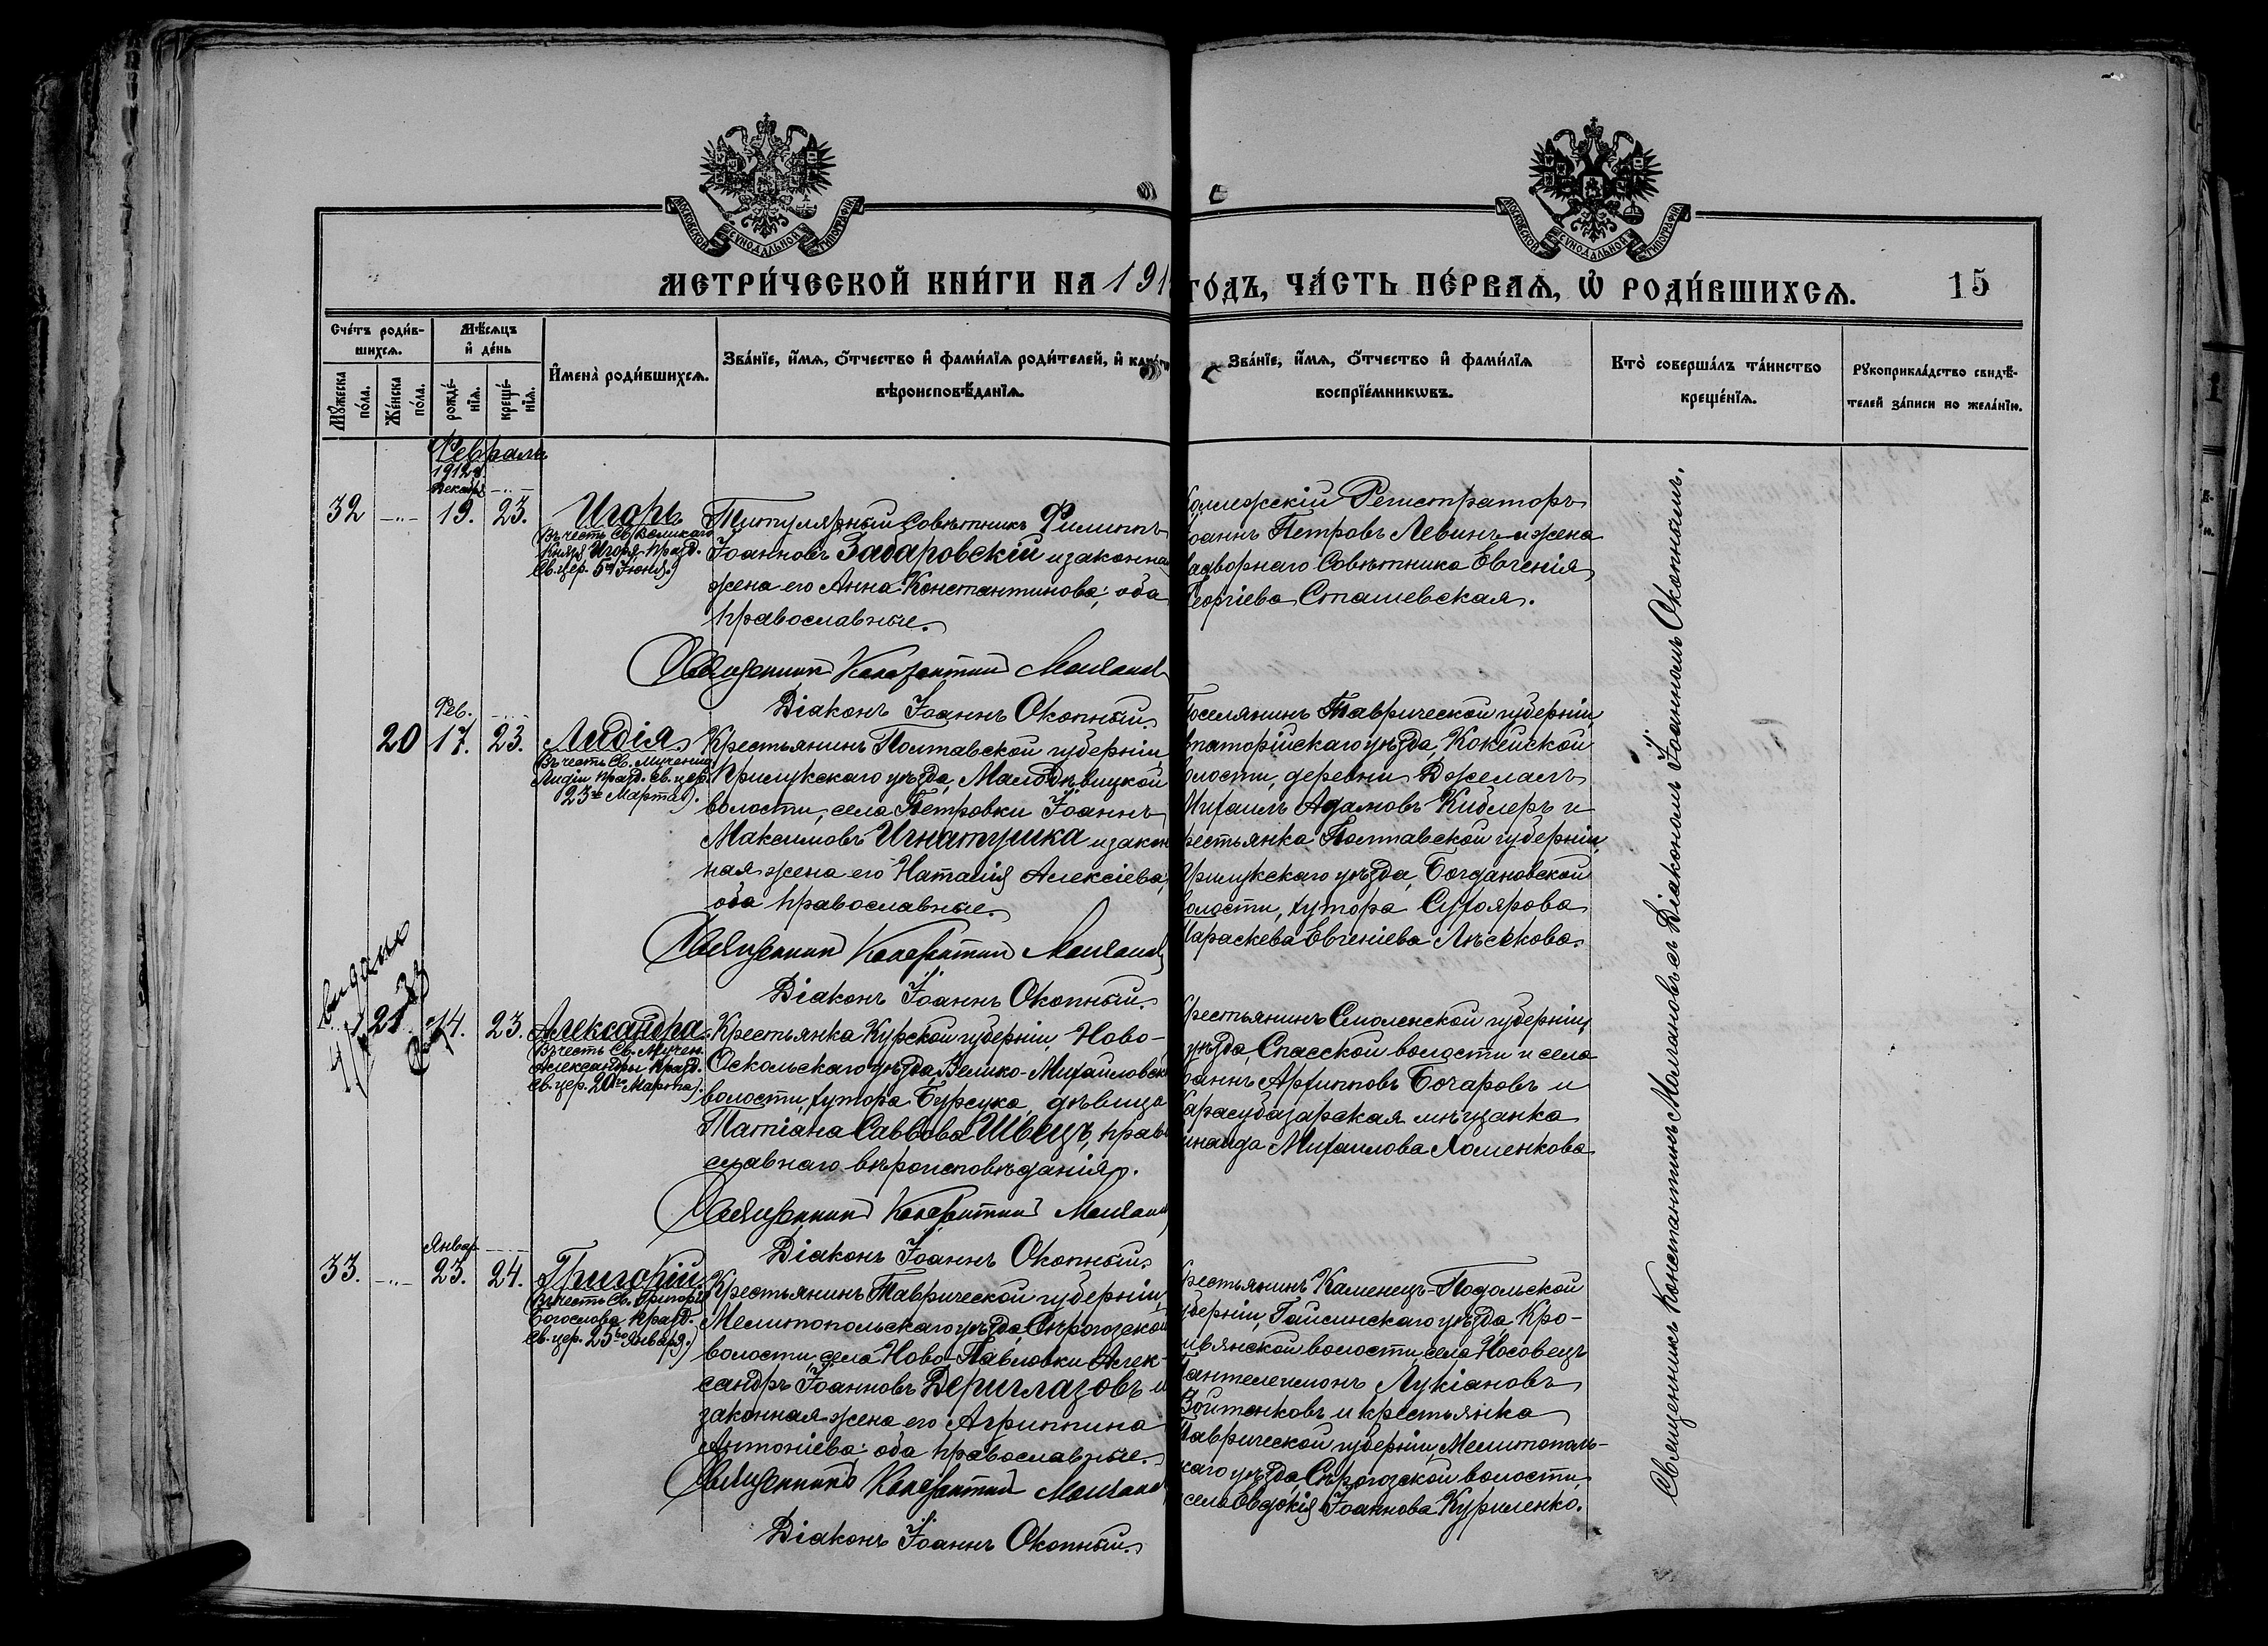 МОСКОВСКОЙ СѴНОДАЛЬНОЙ ТИПОГРАФІИ
МОСКОВСКОЙ СѴНОДАЛЬНОЙ ТИПОГРАФІИ
МЕТРИ́ЧЕСКОЙ КНИ́ГИ НА 191
ГО́ДЪ, ЧА́СТЬ ПЕ́РВАѦ, Ѡ҆ РОДИ́ВШИХСѦ.
15
Сче́тъ роди́в-
шихсѧ.
Мѣ́сѧцъ
и҆ де́нь
Мꙋ́жеска
по́ла.
Же́нска
по́ла.
рожде́-
нїѧ.
креще́-
нїѧ.
И҆мена̀ роди́вшихсѧ.
Зва́нїе, и҆́мѧ, ѻ҆́тчество и҆ фами́лїѧ роди́телей, и҆
вѣроисповѣ́данїѧ.
Зва́нїе, и҆́мѧ, ѻ҆́тчество и҆ фами́лїѧ
воспрїе́мникѡвъ.
Кто̀ соверша́лъ та́инство
креще́нїѧ.
Рꙋкоприкла́дство свидѣ́-
телей за́писи по жела́нїю.
Февраль
1912 г.
Декабрь
32 19. 23. Игорь
Въ честь Св. Великаго
Князя Игоря празд.
Св. цер. 5го Іюня.)
Титулярный Совѣтникъ Филиппъ
Іоанновъ Забаровскій и законна
жена его Анна Константинова; оба
православные.
Священникъ Константинъ
Діаконъ Іоаннъ Окопный.
Регистраторъ
Іоаннъ Петровъ Левинъ и жена
Надворнаго Совѣтника Евгенія
Георгіева Сташевская.
Фев.
20 17. 23. Лидія
Въ честь Св. Мучениц.
Лидіи празд. Св. цер.
23го Марта).
Крестьянинъ Полтавской губерніи,
Прилукскаго уѣзда, Малодѣвицкой
волости, села Петровки Іоаннъ
Максимовъ Игнатушка и закон
ная жена его Наталія Алексіева,
оба православные.
Священникъ Константинъ
Діаконъ Іоаннъ Окопный.
Поселянинъ Таврической губерніи
уѣзда, Кокейской
волости, деревни Джелалъ
Михаилъ Адамовъ Киблеръ и
крестьянка Полтавской губерніи,
Прилукскаго уѣзда, Богдановской
волости, хутора Сухоярова
Параскева Евгеніева Лѣсакова.
Выдано
21 14. 23. Александра
Въ честь Св. Мучен.
Александры празд.
Св. цер. 20го Марта).
Крестьянка Курской губерніи, Ново-
Оскольскаго уѣзда, Велико-Михайловск
волости, хутора Бурсука, дѣвица
Татіана Саввова Швецъ, прав
славнаго вѣроисповѣданія.
Священникъ Константинъ
Діаконъ Іоаннъ Окопный.
Крестьянинъ Смоленской губерніи,
уѣзда, Спасской волости и села
Іоаннъ Архиповъ Бочаровъ и
Карасубазарская мѣщанка
Зинаида Михаилова Хоменкова
Январ
33. 23. 24. Григорій
Въ честь Св. Григорія
Богослова празд.
Св. цер. 25го Января.)
Крестьянинъ Таврической губерніи,
Мелитопольскаго уѣзда, Сѣрогозской
волости, села Ново-Павловки Алек-
сандръ Іоанновъ Дериглазовъ и
законная жена его Агриппина
Антоніева; оба православные.
Священникъ Константинъ
Діаконъ Іоаннъ Окопный.
Крестьянинъ Каменецъ-Подольской
губерніи, Гайсинскаго уѣзда, Кро-
пивянской волости, села Носовецъ
Пантелеимонъ Лукіановъ
Войтенковъ и крестьянка
Таврической губерніи, Мелитополь-
скаго уѣзда, Сѣрогозской волости,
села Евдокія Іоаннова Куриленко.
Священникъ Константинъ Молчановъ съ Діакономъ Іоанномъ Окопнымъ.